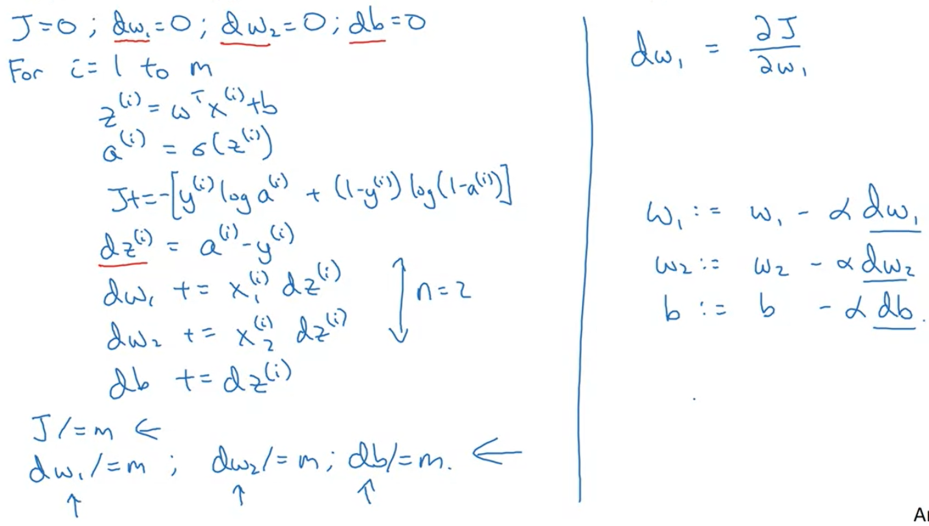 J=0 ; dw₁=0 ; dw₂=0 ; db=0
For i=1 to m
z⁽ⁱ⁾ = wᵀx⁽ⁱ⁾+b
a⁽ⁱ⁾ = σ(z⁽ⁱ⁾)
J+=-[y⁽ⁱ⁾ log a⁽ⁱ⁾ + (1-y⁽ⁱ⁾) log(1-a⁽ⁱ⁾)]
dz⁽ⁱ⁾ = a⁽ⁱ⁾-y⁽ⁱ⁾
dw₁ += x₁⁽ⁱ⁾ dz⁽ⁱ⁾
n=2
dw₂ += x₂⁽ⁱ⁾ dz⁽ⁱ⁾
db += dz⁽ⁱ⁾
J/=m ←
dw₁/=m ; dw₂/=m ; db/=m. ←
↑ ↑ ↑
dw₁ = ∂J/∂w₁
w₁ := w₁ - α dw₁
w₂ := w₂ - α dw₂
b := b - α db.